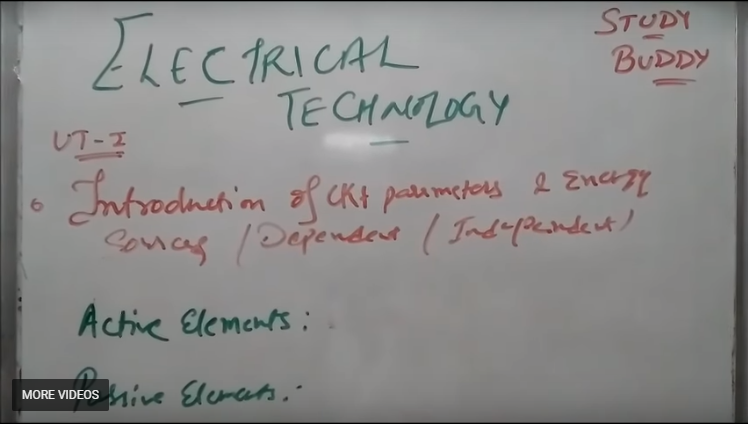 STUDY
BUDDY
ELECTRICAL
TECHNOLOGY
UT-I
Introduction of CKt parameters & Energy
Sources / Dependent / Independent)
Active Elements:
Passive Elements:-
MORE VIDEOS